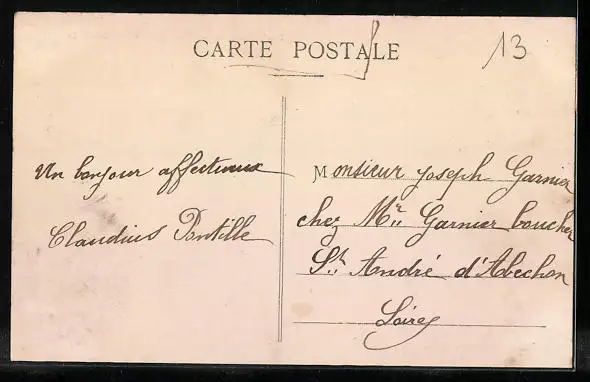 CARTE POSTALE
13
Un bonjour affectueux
Claudius Pontille
Monsieur Joseph Garnier
chez Mr. Garnier boucher
St. André d'Abechon
Loire